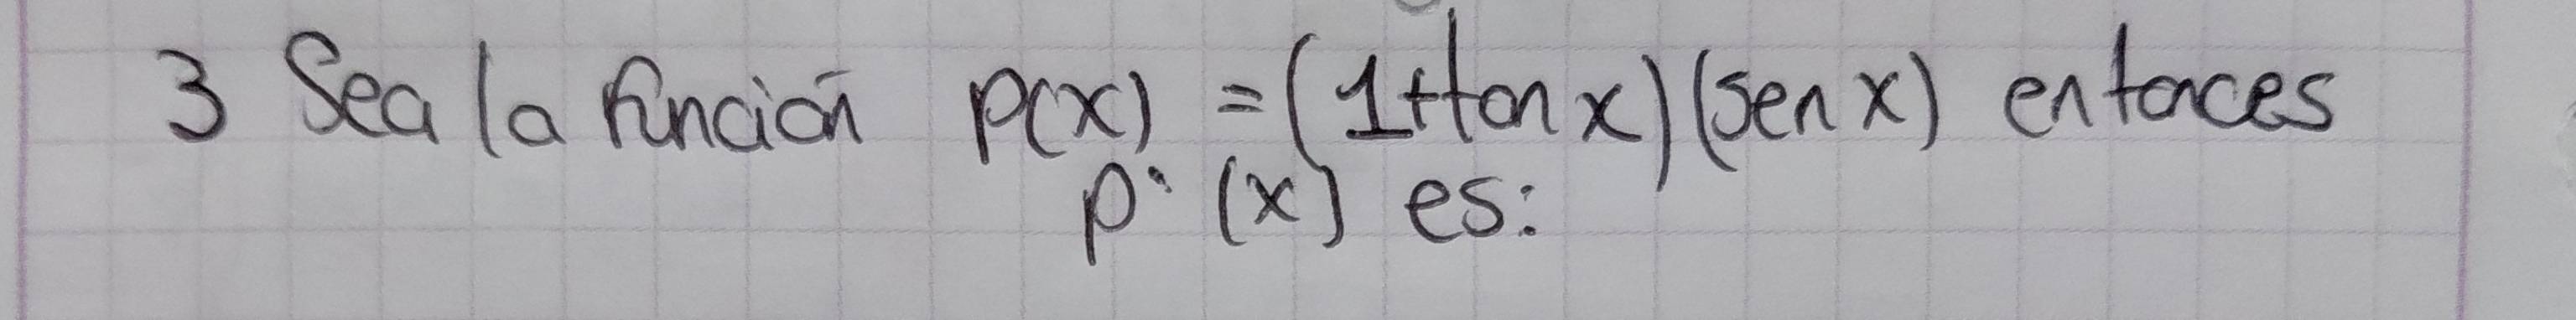 3 Sea la función p(x) = (1+tan x)(sen x) entonces
p' (x) es: